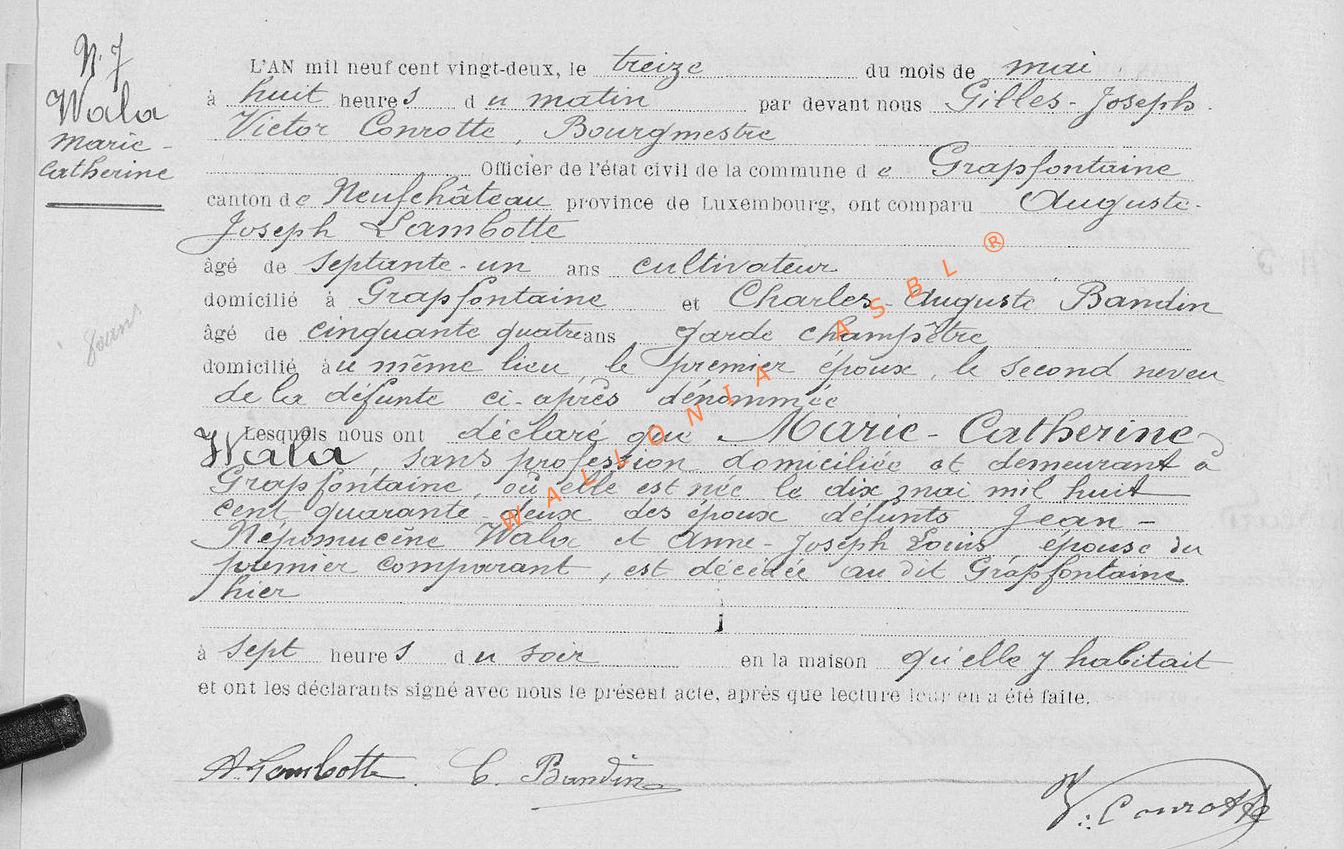 N. 7
Wala
Marie-
Catherine
L'AN mil neuf cent vingt-deux, le treize du mois de mai
à huit heures du matin par devant nous Gilles-Joseph-
Victor Conrotte, Bourgmestre
Officier de l'état civil de la commune de Grapfontaine
canton de Neufchâteau province de Luxembourg, ont comparu Auguste-
Joseph Lambotte
âgé de septante-un ans cultivateur
domicilié à Grapfontaine et Charles-Auguste Bandin
âgé de cinquante quatre ans garde champêtre
domicilié au même lieu, le premier époux, le second neveu
de la défunte ci-après dénommée
Lesquels nous ont déclaré que Marie-Catherine
Wala, sans profession domiciliée et demeurant à
Grapfontaine, où elle est née le dix mai mil huit
cent quarante-deux des époux défunts Jean-
Népomucène Wala et Anne-Joseph Louis, épouse du
premier comparant, est décédée au dit Grapfontaine
hier
à sept heures du soir en la maison qu'elle y habitait
et ont les déclarants signé avec nous le présent acte, après que lecture leur en a été faite.
A. Lambotte C. Bandin
V. Conrotte
WALLONIA ASBL ®